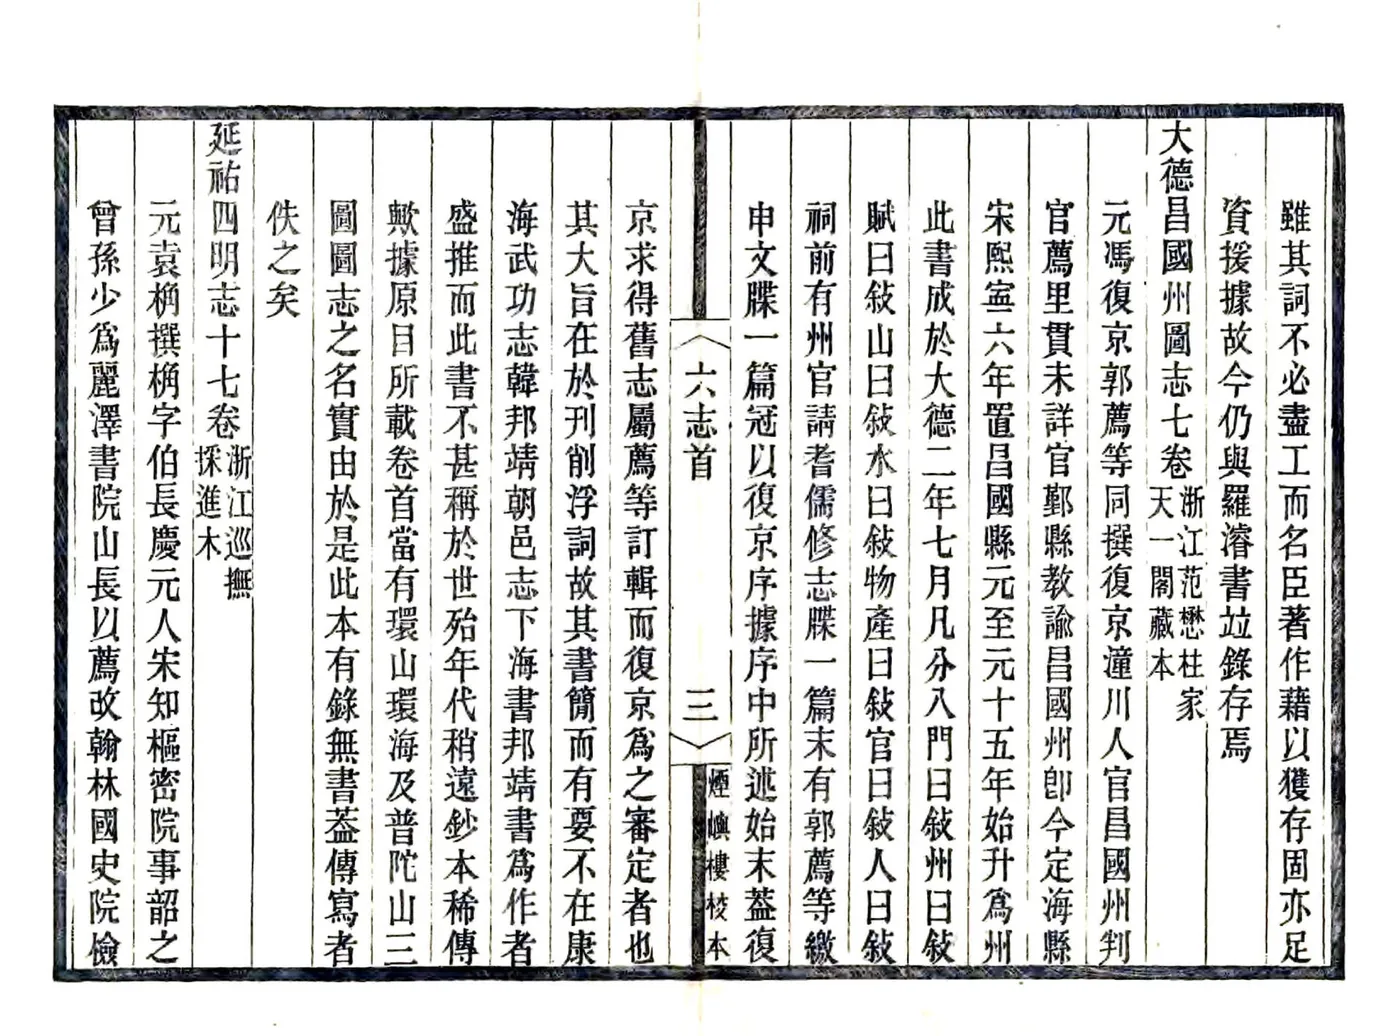 雖其詞不必盡工而名臣著作藉以獲存固亦足
資援據故今仍與羅濬書竝錄存焉
大德昌國州圖志七卷浙江范懋柱家天一閣藏本
元馮復京郭薦等同撰復京潼川人官昌國州判
官薦里貫未詳官鄞縣教諭昌國州卽今定海縣
宋熙寍六年置昌國縣元至元十五年始升爲州
此書成於大德二年七月凡分八門曰敍州曰敍
賦曰敍山曰敍水曰敍物產曰敍官曰敍人曰敍
祠前有州官請耆儒修志牒一篇末有郭薦等繳
申文牒一篇冠以復京序據序中所述始末蓋復
六志首
三
煙嶼樓校本
京求得舊志屬薦等訂輯而復京爲之審定者也
其大旨在於刊削浮詞故其書簡而有要不在康
海武功志韓邦靖朝邑志下海書邦靖書爲作者
盛推而此書不甚稱於世殆年代稍遠鈔本稀傳
歟據原目所載卷首當有環山環海及普陀山三
圖圖志之名實由於是此本有錄無書葢傳寫者
佚之矣
延祐四明志十七卷浙江巡撫採進本
元袁桷撰桷字伯長慶元人宋知樞密院事韶之
曾孫少爲麗澤書院山長以薦改翰林國史院檢